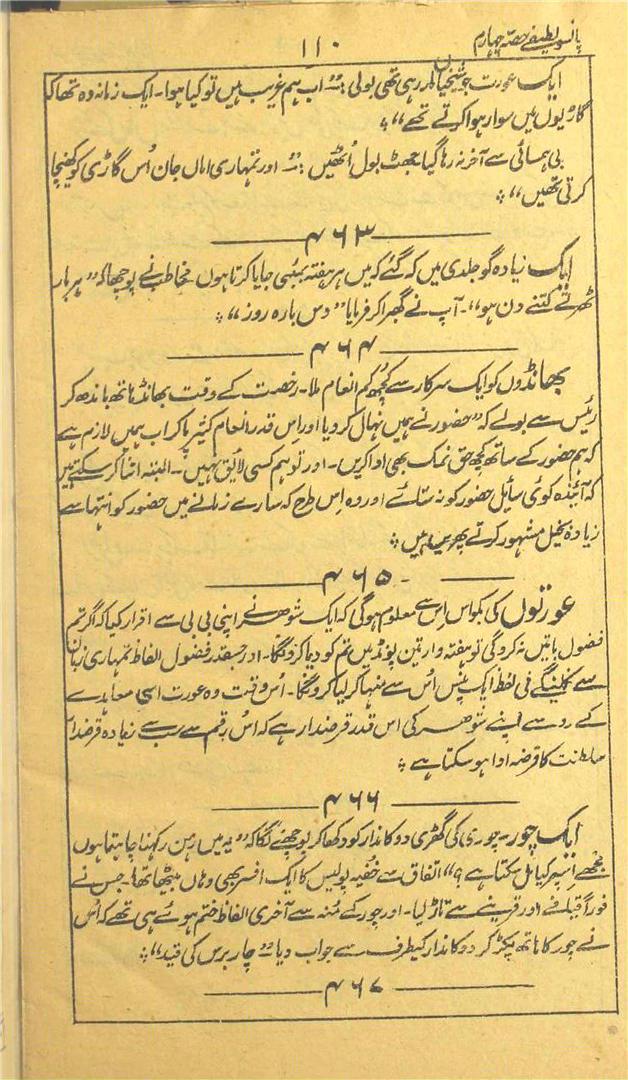 پانسو لطیفے حصہ چہارم
۱۱۰
ایک عورت جو شیخیاں مار رہی تھی بولی :۔ “اب ہم غریب ہیں تو کیا ہوا۔ ایک زمانہ وہ تھا کہ
گاڑیوں میں سوار ہوا کرتے تھے”
بی ہمسائی سے آخر نہ رہا گیا جھٹ بول اُٹھیں :۔ “اور تمہاری اماں جان اُس گاڑی کو کھینچا
کرتی تھیں”
۴۶۳
ایک زیادہ گو جلدی میں کہ گئے کہ میں ہر ہفتہ بمبئی جایا کرتا ہوں۔ مخاطب نے پوچھا کہ “ہر بار
ٹھرتے کتنے دن ہو”۔ آپ نے گھبرا کر فرمایا “دس بارہ روز”
۴۶۴
بھانڈوں کو ایک سرکار سے کچھ کم انعام ملا۔ رخصت کے وقت بھانڈ ہاتھ باندھ کر
رئیس سے بولے کہ “حضور نے ہمیں نہال کر دیا اور اس قدر انعام کثیر پا کر اب ہمیں لازم ہے
کہ ہم حضور کے ساتھ کچھ حق نمک بھی ادا کریں۔ اور تو ہم کسی لائق نہیں۔ البتہ اتنا کر سکتے ہیں
کہ آئندہ کوئی سائل حضور کو نہ ستائے اور وہ اس طرح کہ سارے زمانے میں حضور کو انتہا سے
زیادہ بخیل مشہور کرتے پھریں ہیں
۴۶۵
عورتوں کی بکواس اس سے معلوم ہوگی کہ ایک شوھر نے اپنی بی بی سے اقرار کیا کہ اگر تم
فضول باتیں نہ کرو گی تو ہفتہ وار تین پونڈ میں تم کو دیا کرونگا۔ اور جسقدر فضول الفاظ تمہاری زبان
سے نکلینگے فی لفظ ایک پنس اُس سے منہا کر لیا کرونگا۔ اُس وقت وہ عورت اسی معاہدے
کے رو سے اپنے شوھر کی اس قدر قرضدار ہے کہ اس رقم سے سب سے زیادہ قرضدار
سلطنت کا قرضہ ادا ہو سکتا ہے
۴۶۶
ایک چور۔ چوری کی گھڑی دوکاندار کو دکھا کر پوچھنے لگا کہ “یہ میں رہن رکھنا چاہتا ہوں
مجھے اسپر کیا مل سکتا ہے؟” اتفاق سے خفیہ پولیس کا ایک افسر بھی وہاں بیٹھا تھا۔ جس نے
فوراً قیافے اور قرینے سے تاڑ لیا۔ اور چور کے منہ سے آخری الفاظ ختم ہوئے ہی تھے کہ اُس
نے چور کا ہاتھ پکڑ کر دوکاندار کیطرف سے جواب دیا “چار برس کی قید”
۴۶۷